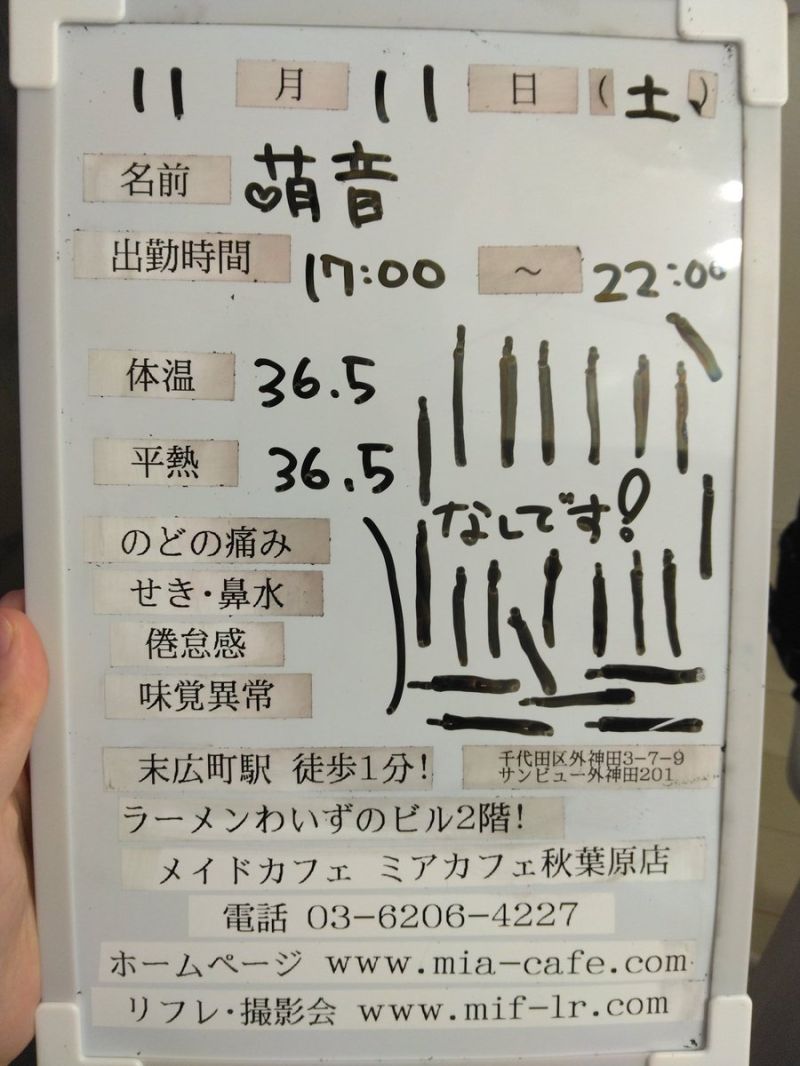 11月11日(土)
名前 萌音
出勤時間 17:00 〜 22:00
体温 36.5
平熱 36.5
なしです!
のどの痛み
せき・鼻水
倦怠感
味覚異常
末広町駅 徒歩1分!
千代田区外神田3-7-9
サンビュー外神田201
ラーメンわいずのビル2階!
メイドカフェ ミアカフェ秋葉原店
電話 03-6206-4227
ホームページ www.mia-cafe.com
リフレ・撮影会 www.mif-lr.com